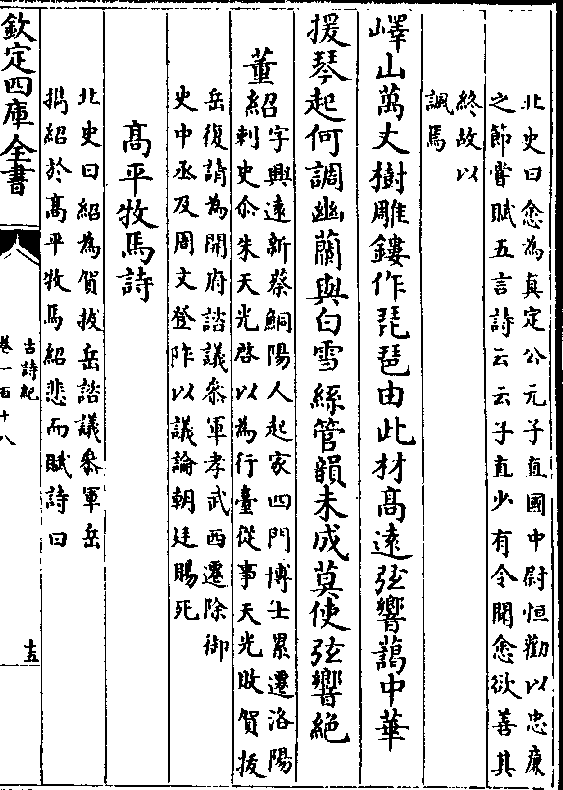 北史曰愈為真定公元子直國中尉恒勸以忠廉
之節嘗賦五言詩云云子直少有令聞愈欲善其
終故以
諷焉
嶧山萬丈樹雕鏤作琵琶由此材高遠弦響藹中華
援琴起何調幽蘭與白雪絲管韻未成莫使弦響絕
董紹字興遠新蔡鮦陽人起家四門博士累遷洛陽
刺史尒朱天光啓以為行臺從事天光敗賀拔
岳復請為開府諮議叅軍孝武西遷除御
史中丞及周文登阼以議論朝廷賜死
髙平牧馬詩
北史曰紹為賀拔岳諮議叅軍岳
携紹於髙平牧馬紹悲而賦詩曰
欽定四庫全書
古詩紀
卷一百十八
十五